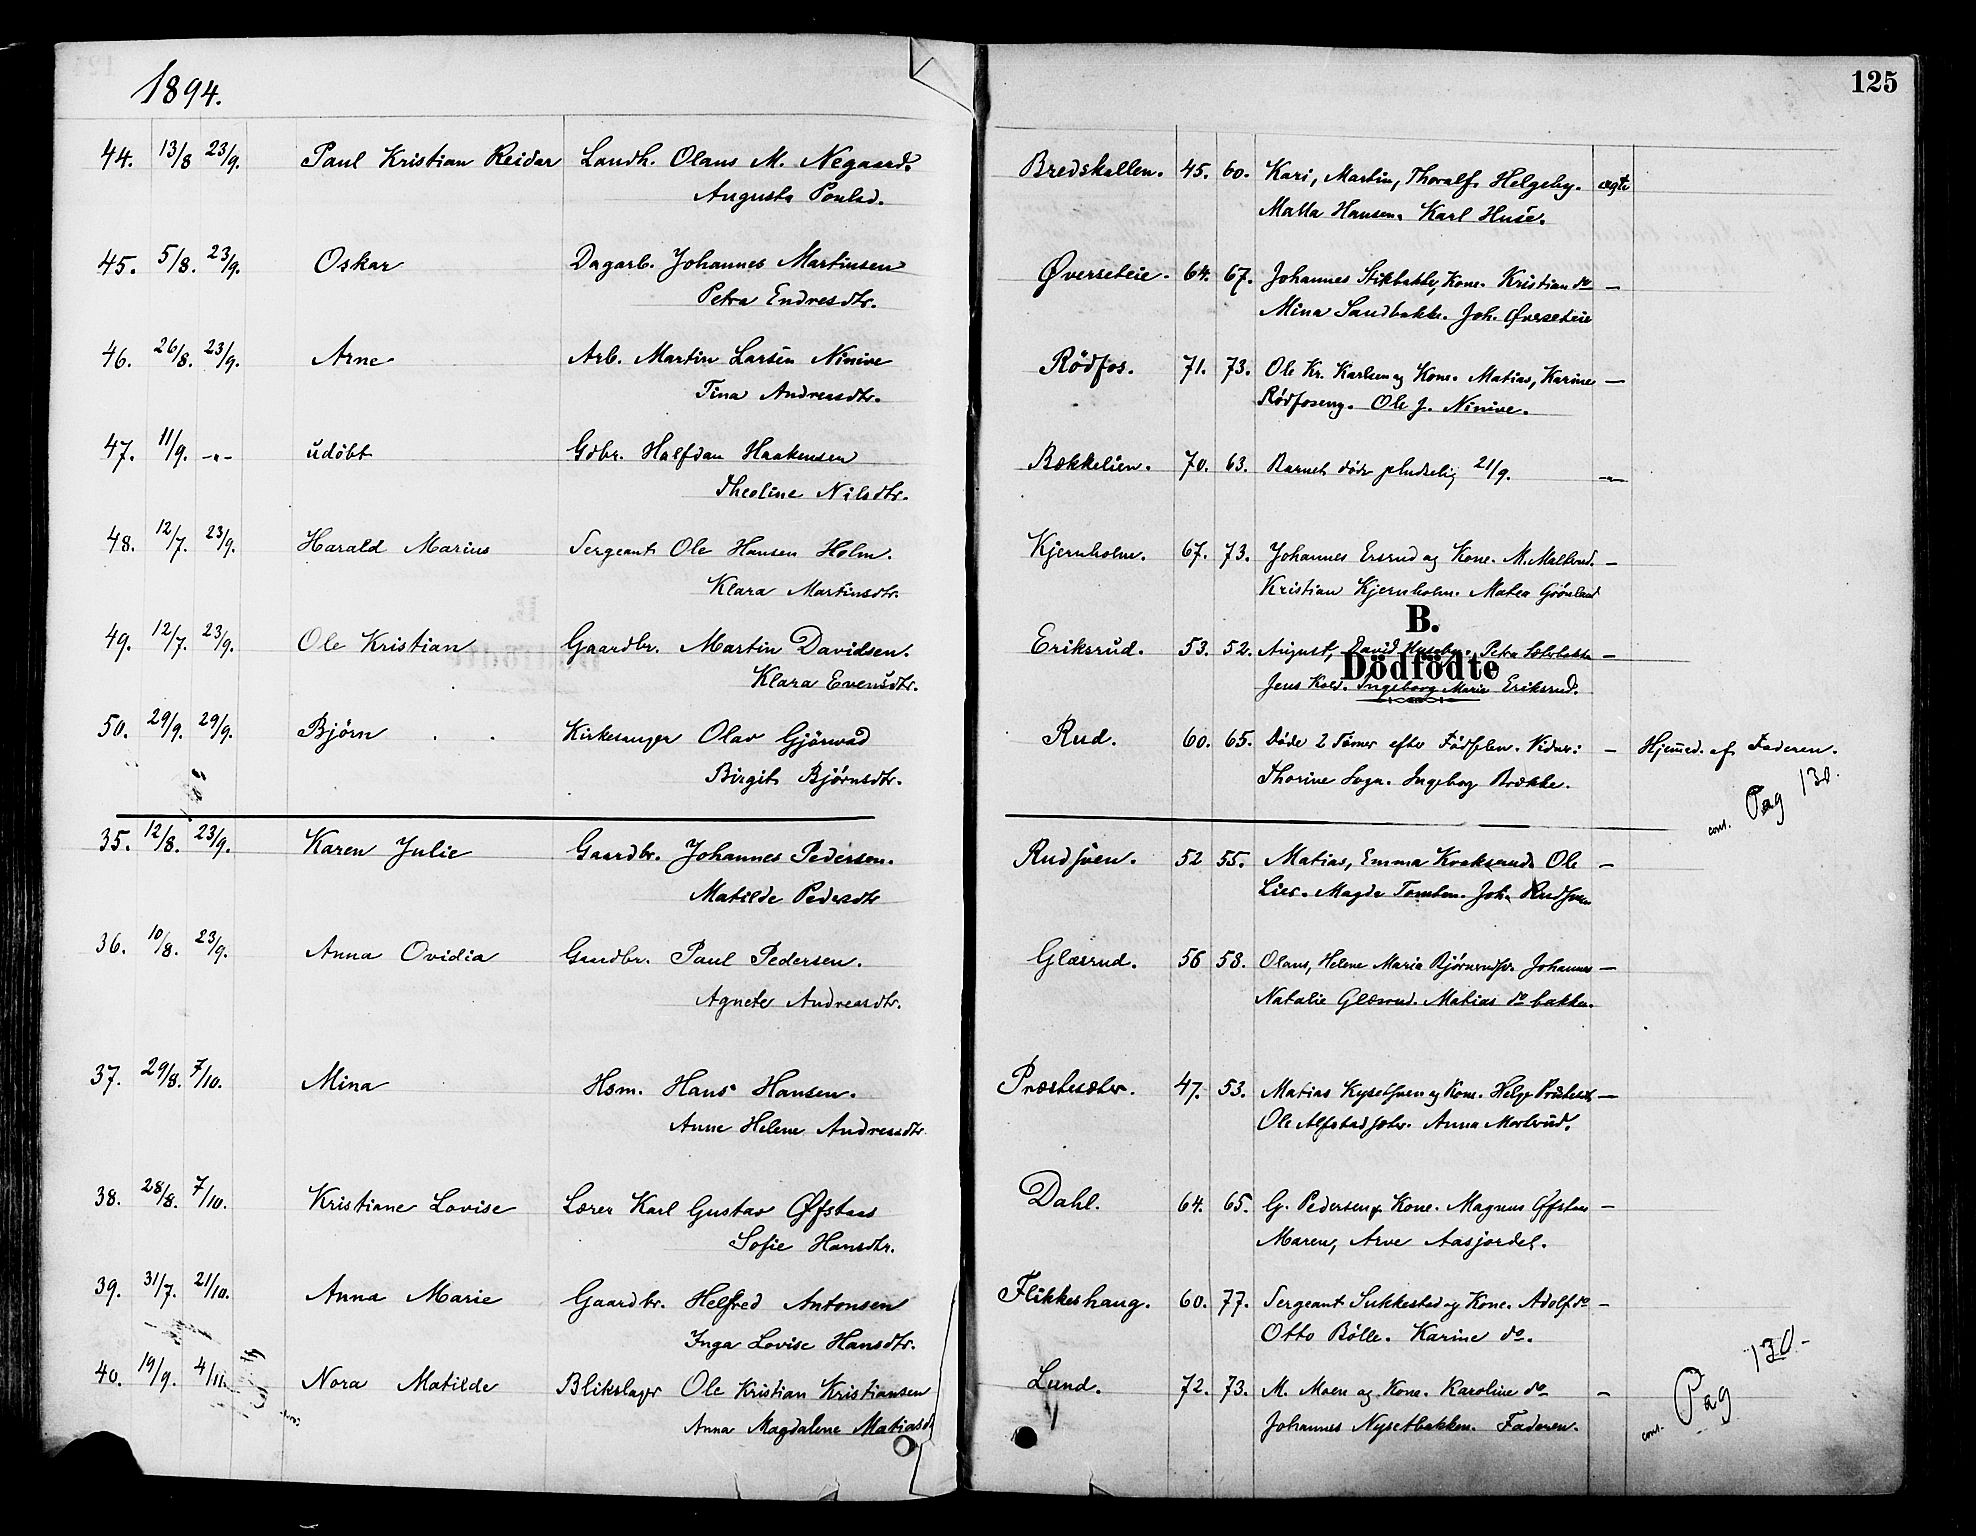 1894.
125
44. 13/8 23/9. Paul Kristian Reidar Landh. Olaus M. Negaard. Bredskallen. 45. 60. Kari, Martin, Thoralf Helgeby. ægte
Augusta Poulsd. Malla Hansen. Karl Huse.
45. 5/8. 23/9. Oskar Dagarb. Johannes Martinsen Øverseteie. 64. 67. Johannes Stikbakke, Kone. Kristian do —
Petra Endresdtr. Mina Sandbakke. Joh. Øverseteie
46. 26/8. 23/9. Arne Arb. Martin Larsen Ninive Rödfos. 71. 73. Ole Kr. Karlsen og Kone. Matias, Karine —
Tina Andreasdtr. Rödfoseng. Ole J. Ninive.
47. 11/9. -"- udöbt Gdbr. Halfdan Haakensen Bækkelien. 70. 63. Barnet döde pludselig 21/9. —
Theoline Nilsdtr.
48. 12/7. 23/9. Harald Marius Sergeant Ole Hansen Holm. Kjernholm. 67. 73. Johannes Ersrud og Kone. —
Klara Martinsdtr. Kristian Kjernholm. Matea Grönlund
B.
49. 12/7. 23/9. Ole Kristian Gaardbr. Martin Davidsen. Eriksrud. 53. 52. August, David Petra —
Dödfödte
Klara Evensdtr. Jens Ingeborg Marie Eriksrud.
50. 29/9. 29/9. Björn Kirkesanger Olav Rud. 60. 65. Döde 2 Timer efter Födselen. — Hjemmed. af Faderen.
Birgit Björnsdtr. Thorine Ingeborg Brække.
conf. Pag 130.
35. 12/8. 23/9. Karen Julie Gaardbr. Johannes Pedersen. Rudsven. 52 55. Matias, Emma Ole —
Matilde Pedersdtr Lier. Magda Tomten. Joh. Rudsven
36. 10/8. 23/9. Anna Ovidia Gaardbr. Paul Pedersen. Glæsrud. 56 58. Olaus, Helene Maria Johannes —
Agnete Andreasdtr. Natalie Glæsrud. Matias do bakken.
37. 29/8. 7/10. Mina Hsm. Hans Hansen. Præstesæter. 47. 53. Matias og Kone. Helge —
Anne Helene Andreasdtr. Ole Anna
38. 28/8. 7/10. Kristiane Lovise Lærer Karl Gustav Øfstaas Dahl. 64. 65. G. Pedersen og Kone. Magnus Øfstaas —
Sofie Hansdtr. Maren, Arve Aasjordet.
39. 31/7. 21/10. Anna Marie Gaardbr. Helfred Antonsen Flikkeshaug. 60. 77. Sergeant Sukkestad og Kone. Adolf do —
Inga Lovise Hansdtr. Otto Bölle. Karine do.
40. 19/9. 4/11. Nora Matilde Blikslager Ole Kristian Kristiansen Lund. 72. 73. M. Moen og Kone. Karoline do —
Anna Magdalene Matiasd. Johannes Nysetbakken. Faderen.
conf. Pag 130.